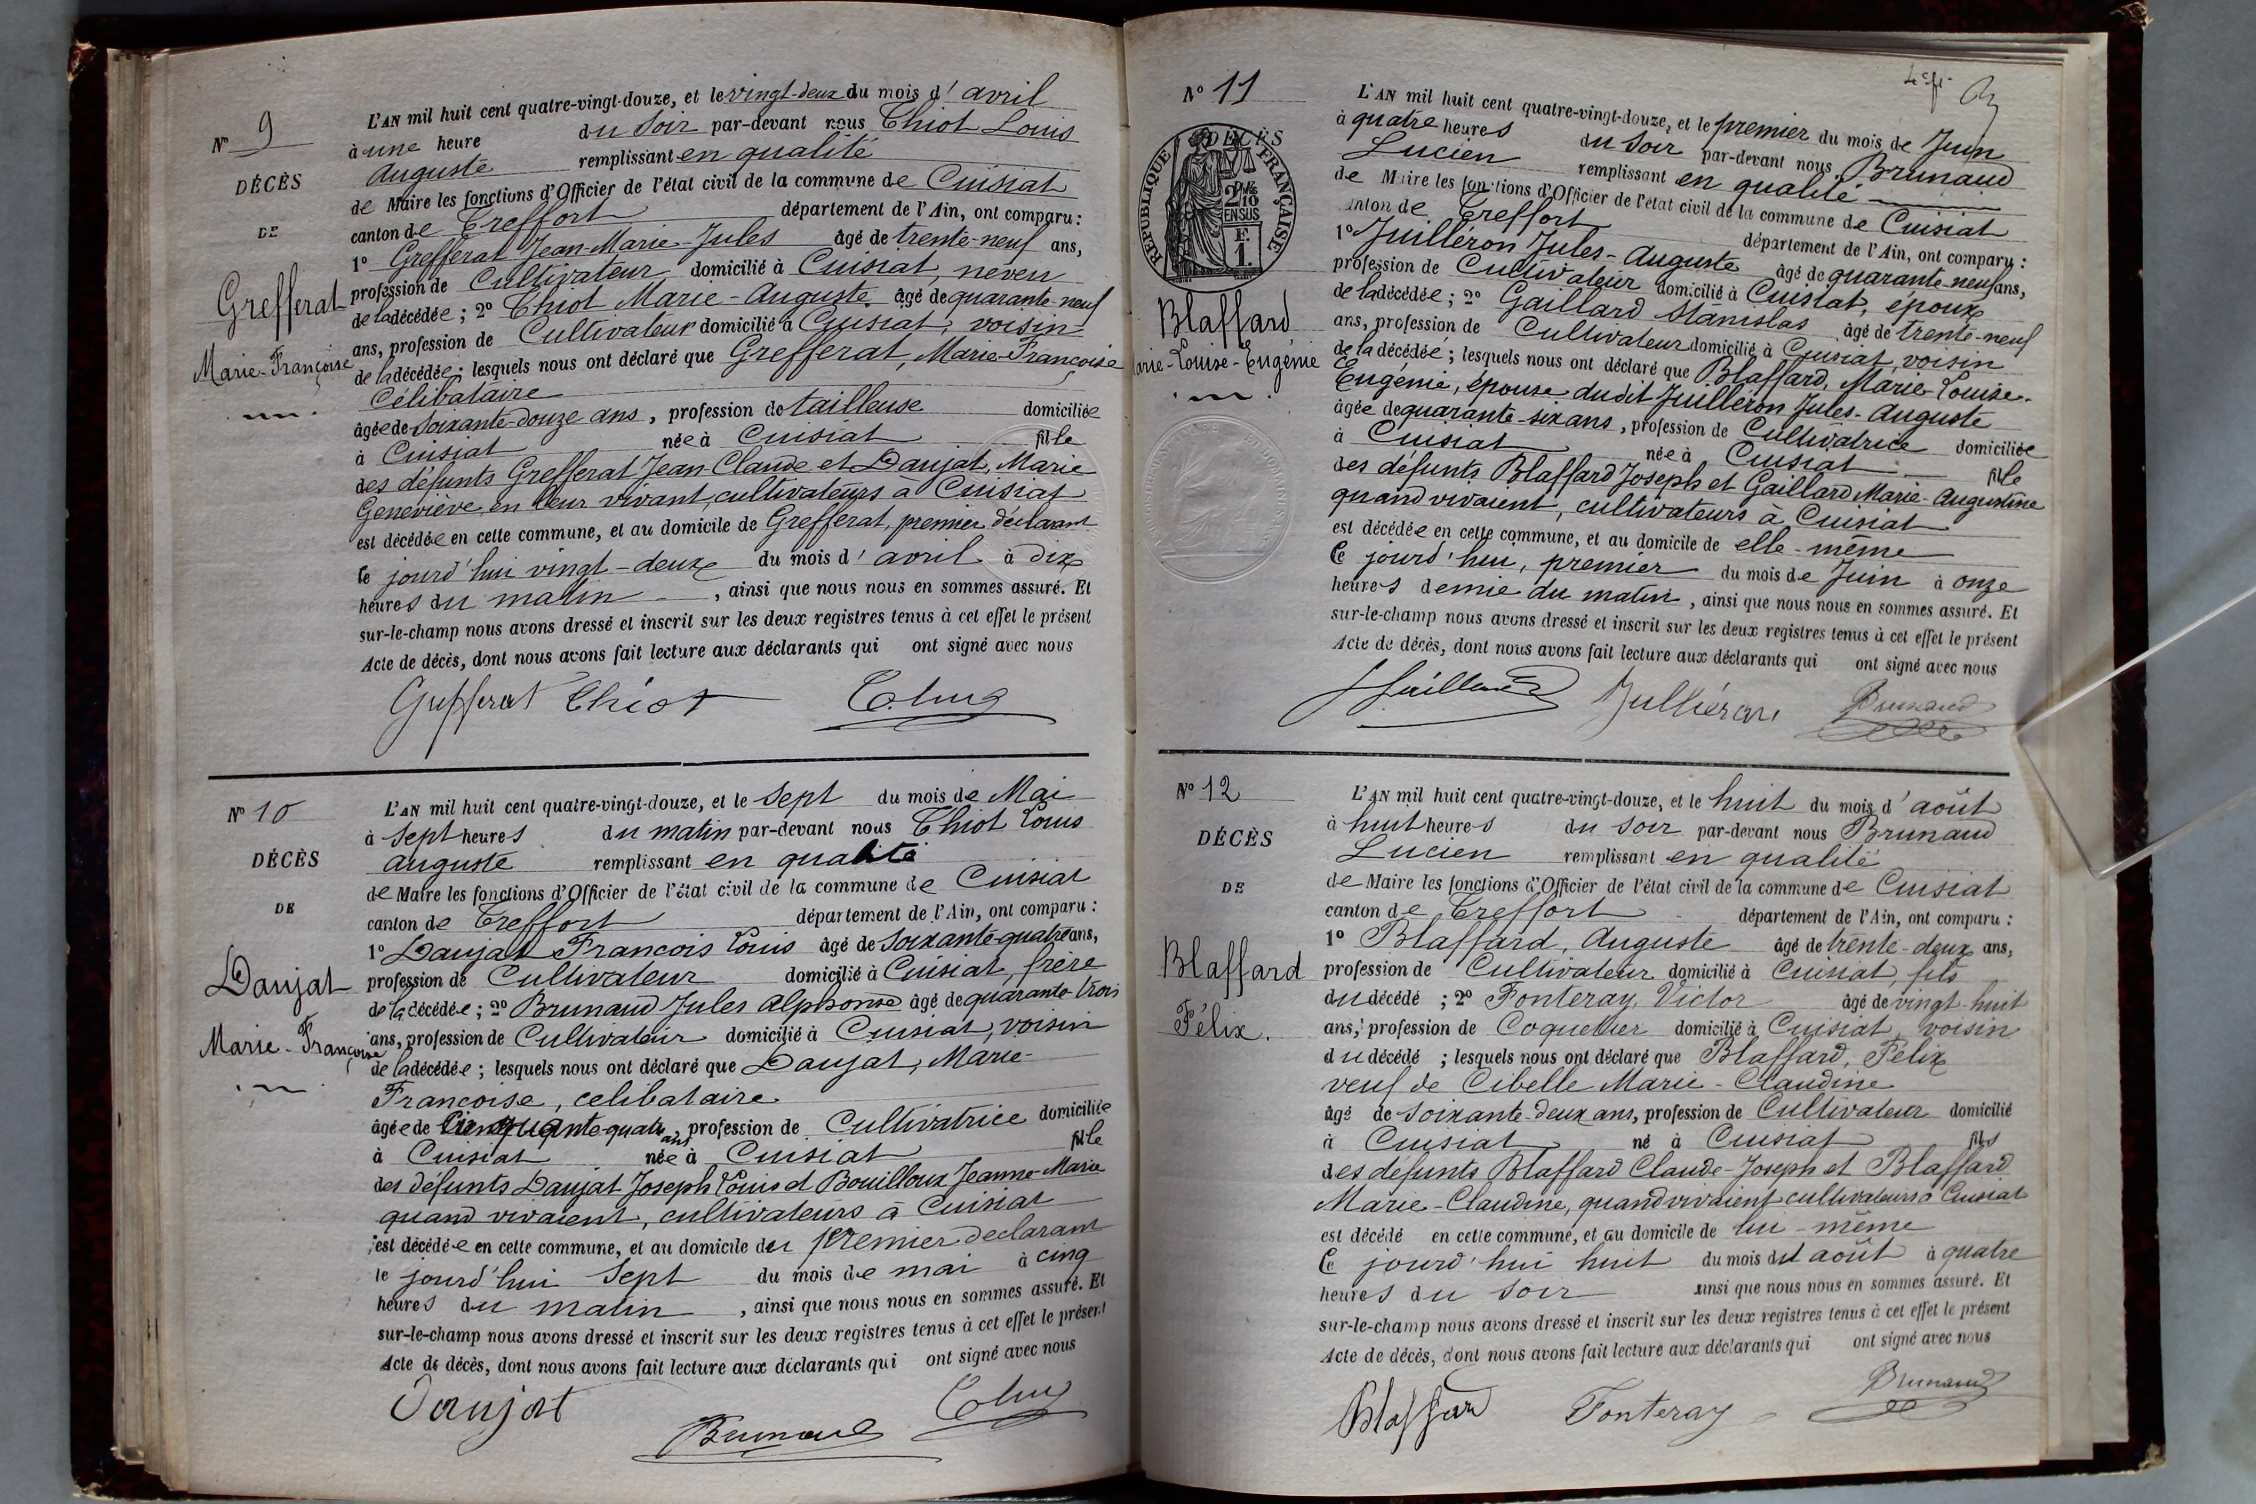 L'AN mil huit cent quatre-vingt-douze, et le vingt-deux du mois d'avril
N° 9
à une heure du soir par-devant nous Thiot Louis
Auguste remplissant en qualité
DÉCÈS
de Maire les fonctions d'Officier de l'état civil de la commune de Cuisiat
canton de Treffort département de l'Ain, ont comparu :
DE
1° Grefferat Jean-Marie-Jules âgé de trente-neuf ans,
profession de Cultivateur domicilié à Cuisiat, neveu
Grefferat
de la décédée ; 2° Thiot Marie-Auguste âgé de quarante-neuf
ans, profession de Cultivateur domicilié à Cuisiat, voisin
Marie-Françoise
de la décédée ; lesquels nous ont déclaré que Grefferat, Marie-Françoise
Célibataire
âgée de soixante-douze ans, profession de tailleuse domiciliée
à Cuisiat née à Cuisiat fille
des défunts Grefferat Jean-Claude et Daujat, Marie
Geneviève en leur vivant, cultivateurs à Cuisiat
est décédée en cette commune, et au domicile de Grefferat, premier déclarant
le jourd'hui vingt-deux du mois d'avril à dix
heures du matin, ainsi que nous nous en sommes assuré. Et
sur-le-champ nous avons dressé et inscrit sur les deux registres tenus à cet effet le présent
Acte de décès, dont nous avons fait lecture aux déclarants qui ont signé avec nous
Grefferat Thiot
N° 10
L'AN mil huit cent quatre-vingt-douze, et le sept du mois de Mai
à sept heures du matin par-devant nous Thiot Louis
Auguste remplissant en qualité
DÉCÈS
de Maire les fonctions d'Officier de l'état civil de la commune de Cuisiat
canton de Treffort département de l'Ain, ont comparu :
DE
1° Daujat François Louis âgé de soixante-quatre ans,
profession de Cultivateur domicilié à Cuisiat, frère
Daujat
de la décédée ; 2° Brunaud Jules Alphonse âgé de quarante-trois
ans, profession de Cultivateur domicilié à Cuisiat, voisin
Marie-Françoise
de la décédée ; lesquels nous ont déclaré que Daujat, Marie-
Françoise, célibataire
âgée de Cinquante-quatre ans, profession de Cultivatrice domiciliée
à Cuisiat née à Cuisiat fille
des défunts Daujat Joseph Louis et Bouilloux Jeanne-Marie
quand vivaient, cultivateurs à Cuisiat
est décédée en cette commune, et au domicile du premier déclarant
le jourd'hui sept du mois de mai à cinq
heures du matin, ainsi que nous nous en sommes assuré. Et
sur-le-champ nous avons dressé et inscrit sur les deux registres tenus à cet effet le présent
Acte de décès, dont nous avons fait lecture aux déclarants qui ont signé avec nous
Daujat Brunaud
N° 11
L'AN mil huit cent quatre-vingt-douze, et le premier du mois de Juin
à quatre heures du soir par-devant nous Brunaud
Lucien remplissant en qualité
DÉCÈS
RÉPUBLIQUE FRANÇAISE
2 DMES 10 EN SUS
F. 1.
de Maire les fonctions d'Officier de l'état civil de la commune de Cuisiat
canton de Treffort département de l'Ain, ont comparu :
1° Juilléron Jules-Auguste âgé de quarante-neuf ans,
profession de Cultivateur domicilié à Cuisiat, époux
de la décédée ; 2° Gaillard Stanislas âgé de trente-neuf
Blaffard
ans, profession de Cultivateur domicilié à Cuisiat, voisin
Marie-Louise-Eugénie
de la décédée ; lesquels nous ont déclaré que Blaffard, Marie-Louise-
Eugénie, épouse dudit Juilléron Jules-Auguste
âgée de quarante-six ans, profession de Cultivatrice domiciliée
à Cuisiat née à Cuisiat fille
des défunts Blaffard Joseph et Gaillard Marie-Augustine
quand vivaient, cultivateurs à Cuisiat
est décédée en cette commune, et au domicile de elle-même
Ce jourd'hui, premier du mois de Juin à onze
heures demie du matin, ainsi que nous nous en sommes assuré. Et
sur-le-champ nous avons dressé et inscrit sur les deux registres tenus à cet effet le présent
Acte de décès, dont nous avons fait lecture aux déclarants qui ont signé avec nous
Julliéron Brunaud
N° 12
L'AN mil huit cent quatre-vingt-douze, et le huit du mois d'août
à huit heures du soir par-devant nous Brunaud
DÉCÈS
Lucien remplissant en qualité
de Maire les fonctions d'Officier de l'état civil de la commune de Cuisiat
DE
canton de Treffort département de l'Ain, ont comparu :
1° Blaffard, Auguste âgé de trente-deux ans,
Blaffard
profession de Cultivateur domicilié à Cuisiat, fils
du décédé ; 2° Fonteray, Victor âgé de vingt-huit
Félix.
ans, profession de Coquetier domicilié à Cuisiat, voisin
du décédé ; lesquels nous ont déclaré que Blaffard, Félix
veuf de Cibelle Marie-Claudine
âgé de soixante-deux ans, profession de Cultivateur domicilié
à Cuisiat né à Cuisiat fils
des défunts Blaffard Claude-Joseph et Blaffard
Marie-Claudine, quand vivaient cultivateurs à Cuisiat
est décédé en cette commune, et au domicile de lui-même
Ce jourd'hui huit du mois d'août à quatre
heures du soir ainsi que nous nous en sommes assuré. Et
sur-le-champ nous avons dressé et inscrit sur les deux registres tenus à cet effet le présent
Acte de décès, dont nous avons fait lecture aux déclarants qui ont signé avec nous
Blaffard Fonteray Brunaud